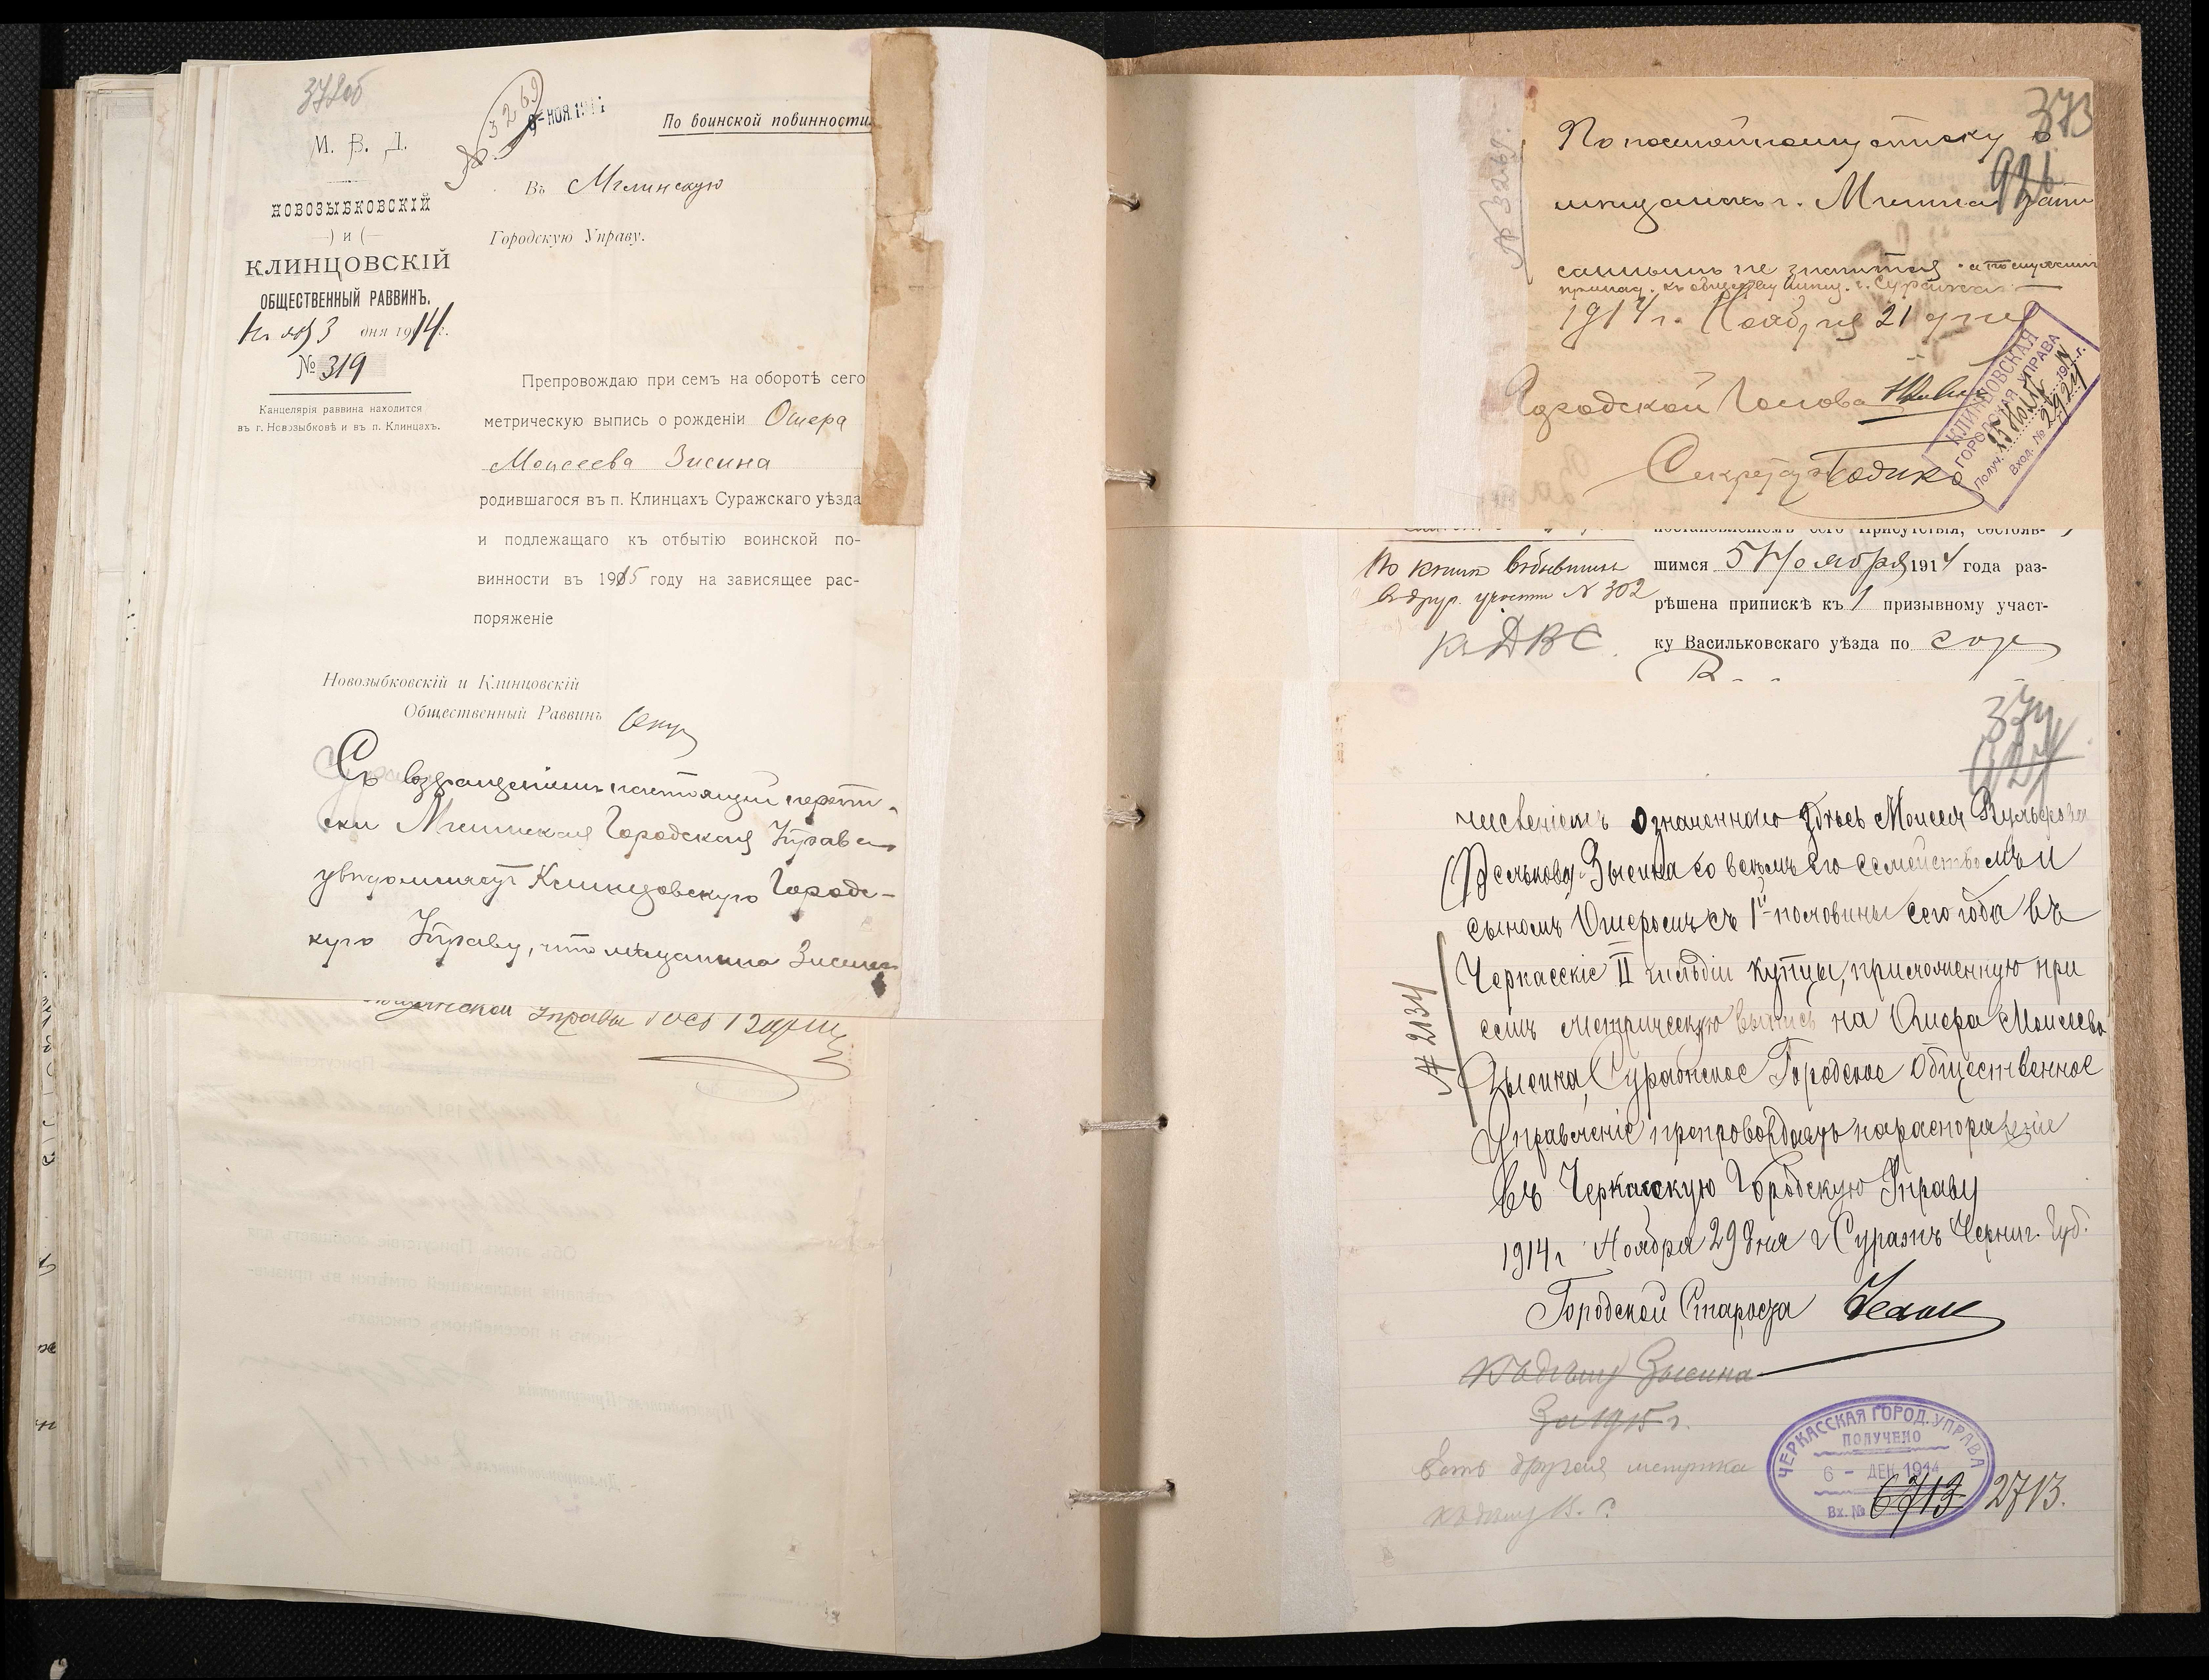 372об
3269
9- НОЯ. 1914
По воинской повинности
М. В. Д.
НОВОЗЫБКОВСКІЙ
—) и (—
КЛИНЦОВСКІЙ
ОБЩЕСТВЕННЫЙ РАВВИНЪ.
Ноябр 3 дня 1914 г.
№ 319
Канцелярія раввина находится
въ г. Новозыбковѣ и въ п. Клинцахъ.
Въ Мглинскую
Городскую Управу.
Препровождаю при семъ на оборотѣ сего
метрическую выпись о рожденіи Ошера
Моисеева Зисина
родившагося въ п. Клинцахъ Суражскаго уѣзда
и подлежащаго къ отбытію воинской по-
винности въ 1915 году на зависящее рас-
поряженіе
Новозыбковскій и Клинцовскій
Общественный Раввинъ
Съ возвращеніемъ настоящей перепи-
ски Мглинская Городская Управа
увѣдомляетъ Клинцовскую Городс-
кую Управу, что мѣщанина Зисина
Управы
373
926
По посемейному списку о
мѣщанахъ г. Мглина запи
саннымъ не значится
1914 г. Ноября 21 дня
Городской Голова
Секретарь
№ 3269.
КЛИНЦОВСКАЯ
ГОРОДСКАЯ УПРАВА
Получ. 15 191 г.
Вход. № 2924
постановленіемъ сего Присутствія, состояв-
шимся 5 Ноября 1914 года раз-
рѣшена припискѣ къ 1 призывному участ-
ку Васильковскаго уѣзда по
По книгѣ
в друг. участки N 302
374
927
численіемъ означеннаго здѣсь Моисея Вульфова
Зысина со всѣмъ его семействомъ и
сыномъ Ошеромъ съ 1й половины сего года въ
Черкасскіе II гильдіи купцы, приложенную при
семъ метрическую выпись на Ошера Моисеева
Зысина, Суражское Городское Общественное
Управленіе препровождаетъ на распоряженіе
въ Черкасскую Городскую Управу
1914 г Ноября 29 дня г Суражъ Черниг. Губ.
Городской Староста
№ 2134
Къ дѣлу Зысина
За 1915 г.
Есть другая метрика
къ дѣлу
ЧЕРКАССКАЯ ГОРОД. УПРАВА
ПОЛУЧЕНО
6 – ДЕК 1914
Вх. № 6713 2713.